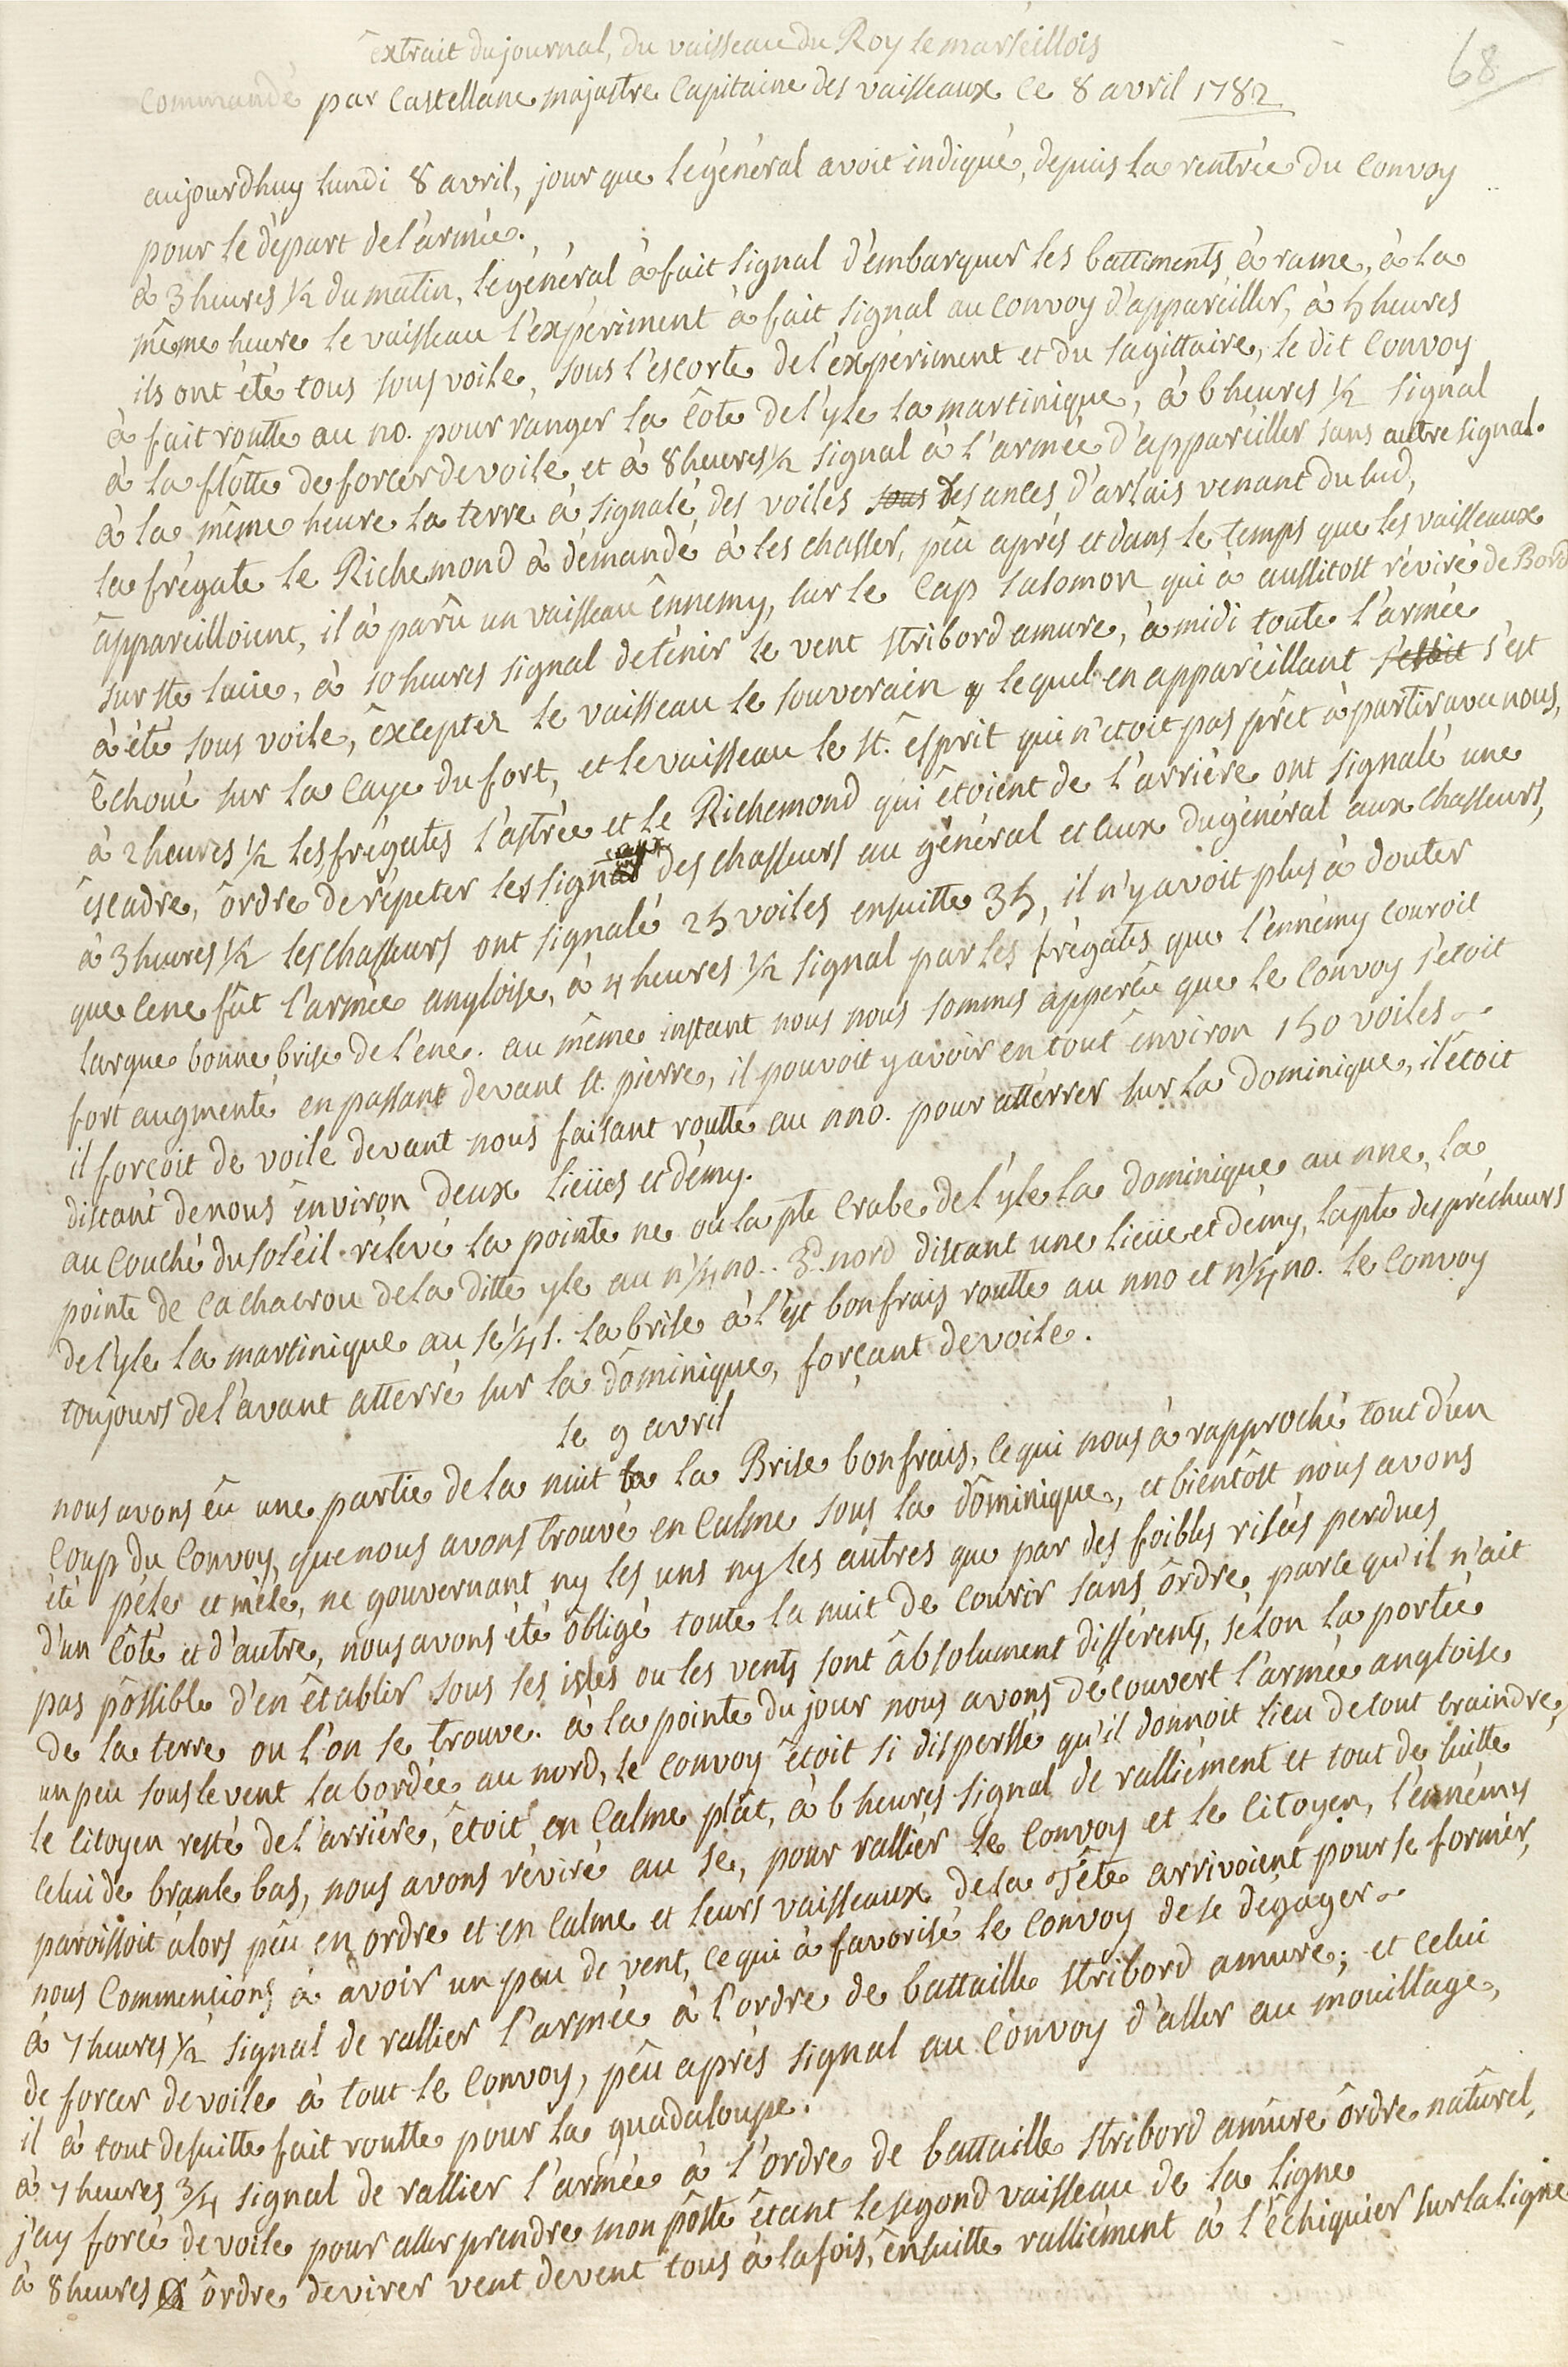 68
extrait du journal, du vaisseau du Roy le marseillois
Commandé par Castellane majastre Capitaine des vaisseaux Ce 8 avril 1782
aujourdhuy lundi 8 avril, jour que le général avoit indiqué, depuis la rentrée du Convoy
pour le départ de l'armée.
à 3 heures 1/2 du matin, le général à fait signal d'embarquer les battiments à rame, à la
même heure le vaisseau l'expériment à fait signal au Convoy d'appareiller, à 5 heures
ils ont été tous sous voile, sous l'escorte de l'expériment et du sagittaire, le dit Convoy
à fait routte au no. pour ranger la Côte de l'yle la martinique, à 6 heures 1/2 signal
à la flôtte de forcer de voile, et à 8 heures 1/2 signal à l'armée d'appareiller sans autre signal.
à la même heure la terre à signalé des voiles sous des ances d'arlais venant du sud,
la frégate le Richemond à demandé à les chasser, pêu aprés et dans le temps que les vaisseaux
âppareilloient, il à parû un vaisseau ênnemy, sur le Cap salomon qui à aussitost réviré de Bord
sur ste lucie, à 10 heures signal de ténir le vent stribord amure, à midi toute l'armée
à été sous voile, êxcepter le vaisseau le souverain lequel en appareillant s'estoit s'est
êchoué sur la Caye du fort, et le vaisseau le st. êsprit qui n'etoit pas prêt à partir avec nous,
à 2 heures 1/2 les frégates l'astrée et le Richemond qui êtoient de l'arriére ont signalé une
êscadre, ôrdre de répeter les signaux des chasseurs au général et ceux du général aux chasseurs,
à 3 heures 1/2 les chasseurs ont signalé 25 voiles ensuitte 35, il n'y avoit plus à douter
que ce ne fût l'armée angloise, à 4 heures 1/2 signal par les frégates que l'ennémy couroit
largue bonne brise de l'ene. au même instant nous nous sommes apperçû que le Convoy s'etoit
fort augmenté en passant devant st. pierre, il pouvoit y avoir en tout ênviron 150 voiles
il forçoit de voile devant nous faisant routte au nno. pour atterrer sur la dominique, il êtoit
distant de nous ênviron deux lieües et démy.
au Couché du soleil relevé la pointe ne ou la pte Crabe de l'yle la dominique au nne, la
pointe de Cachacrou de la ditte yle au n 1/4 no.. 3d. nord distant une lieüe et démy, la pte des précheurs
de l'yle la martinique au se 1/4 s. la brise à l'est bon frais routte au nno et n 1/4 no. le Convoy
toujours de l'avant atterré sur la dôminique, forçant de voile.
le 9 avril
nous avons êu une partie de la nuit la Brise bon frais, ce qui nous à rapproché tout d'un
Coup du Convoy, que nous avons trouvé en Calme sous la dôminique, et bientôst nous avons
été péle et mêle, ne gouvernant ny les uns ny les autres que par des foibles risées perdues
d'un Côté et d'autre, nous avons été ôbligé toute la nuit de Courir sans ôrdre, parce qu'il n'ait
pas pôssible d'en êtablir sous les isles ou les vents sont âbsolument différents, sélon la portée
de la terre ou l'on se trouve. à la pointe du jour nous avons découvert l'armée angloise
un peu sous le vent la bordée au nord, le convoy êtoit si disperssé qu'il donnoit lieu de tout craindre,
le Citoyen resté de l'arriére, êtoit en Calme plât, à 6 heures signal de ralliément et tout de suitte
celui de branle bas, nous avons réviré au se, pour rallier le Convoy et le Citoyen, l'ennémy
paroissoit alors pêu en ordre et en Calme et leurs vaisseaux de la Tête arrivoient pour se former,
nous Commencions à avoir un peu de vent, ce qui à favorisé le Convoy de se dégager
à 7 heures 1/2 signal de rallier l'armée à l'ordre de battaille stribord amure; et celui
de forcer de voile à tout le Convoy, pêu aprés signal au Convoy d'aller au mouillage,
il à tout de suitte fait routte pour la guadaloupe.
à 7 heures 3/4 signal de rallier l'armée à l'ordre de battaille stribord amûre ôrdre natûrel,
j'ay forcé de voile pour aller prendre mon pôste êtant le segond vaisseau de la ligne
à 8 heures ôrdre de virer vent devent tous à la fois, ênsuitte ralliément à l'êchiquier sur la ligne